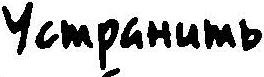 Устранить